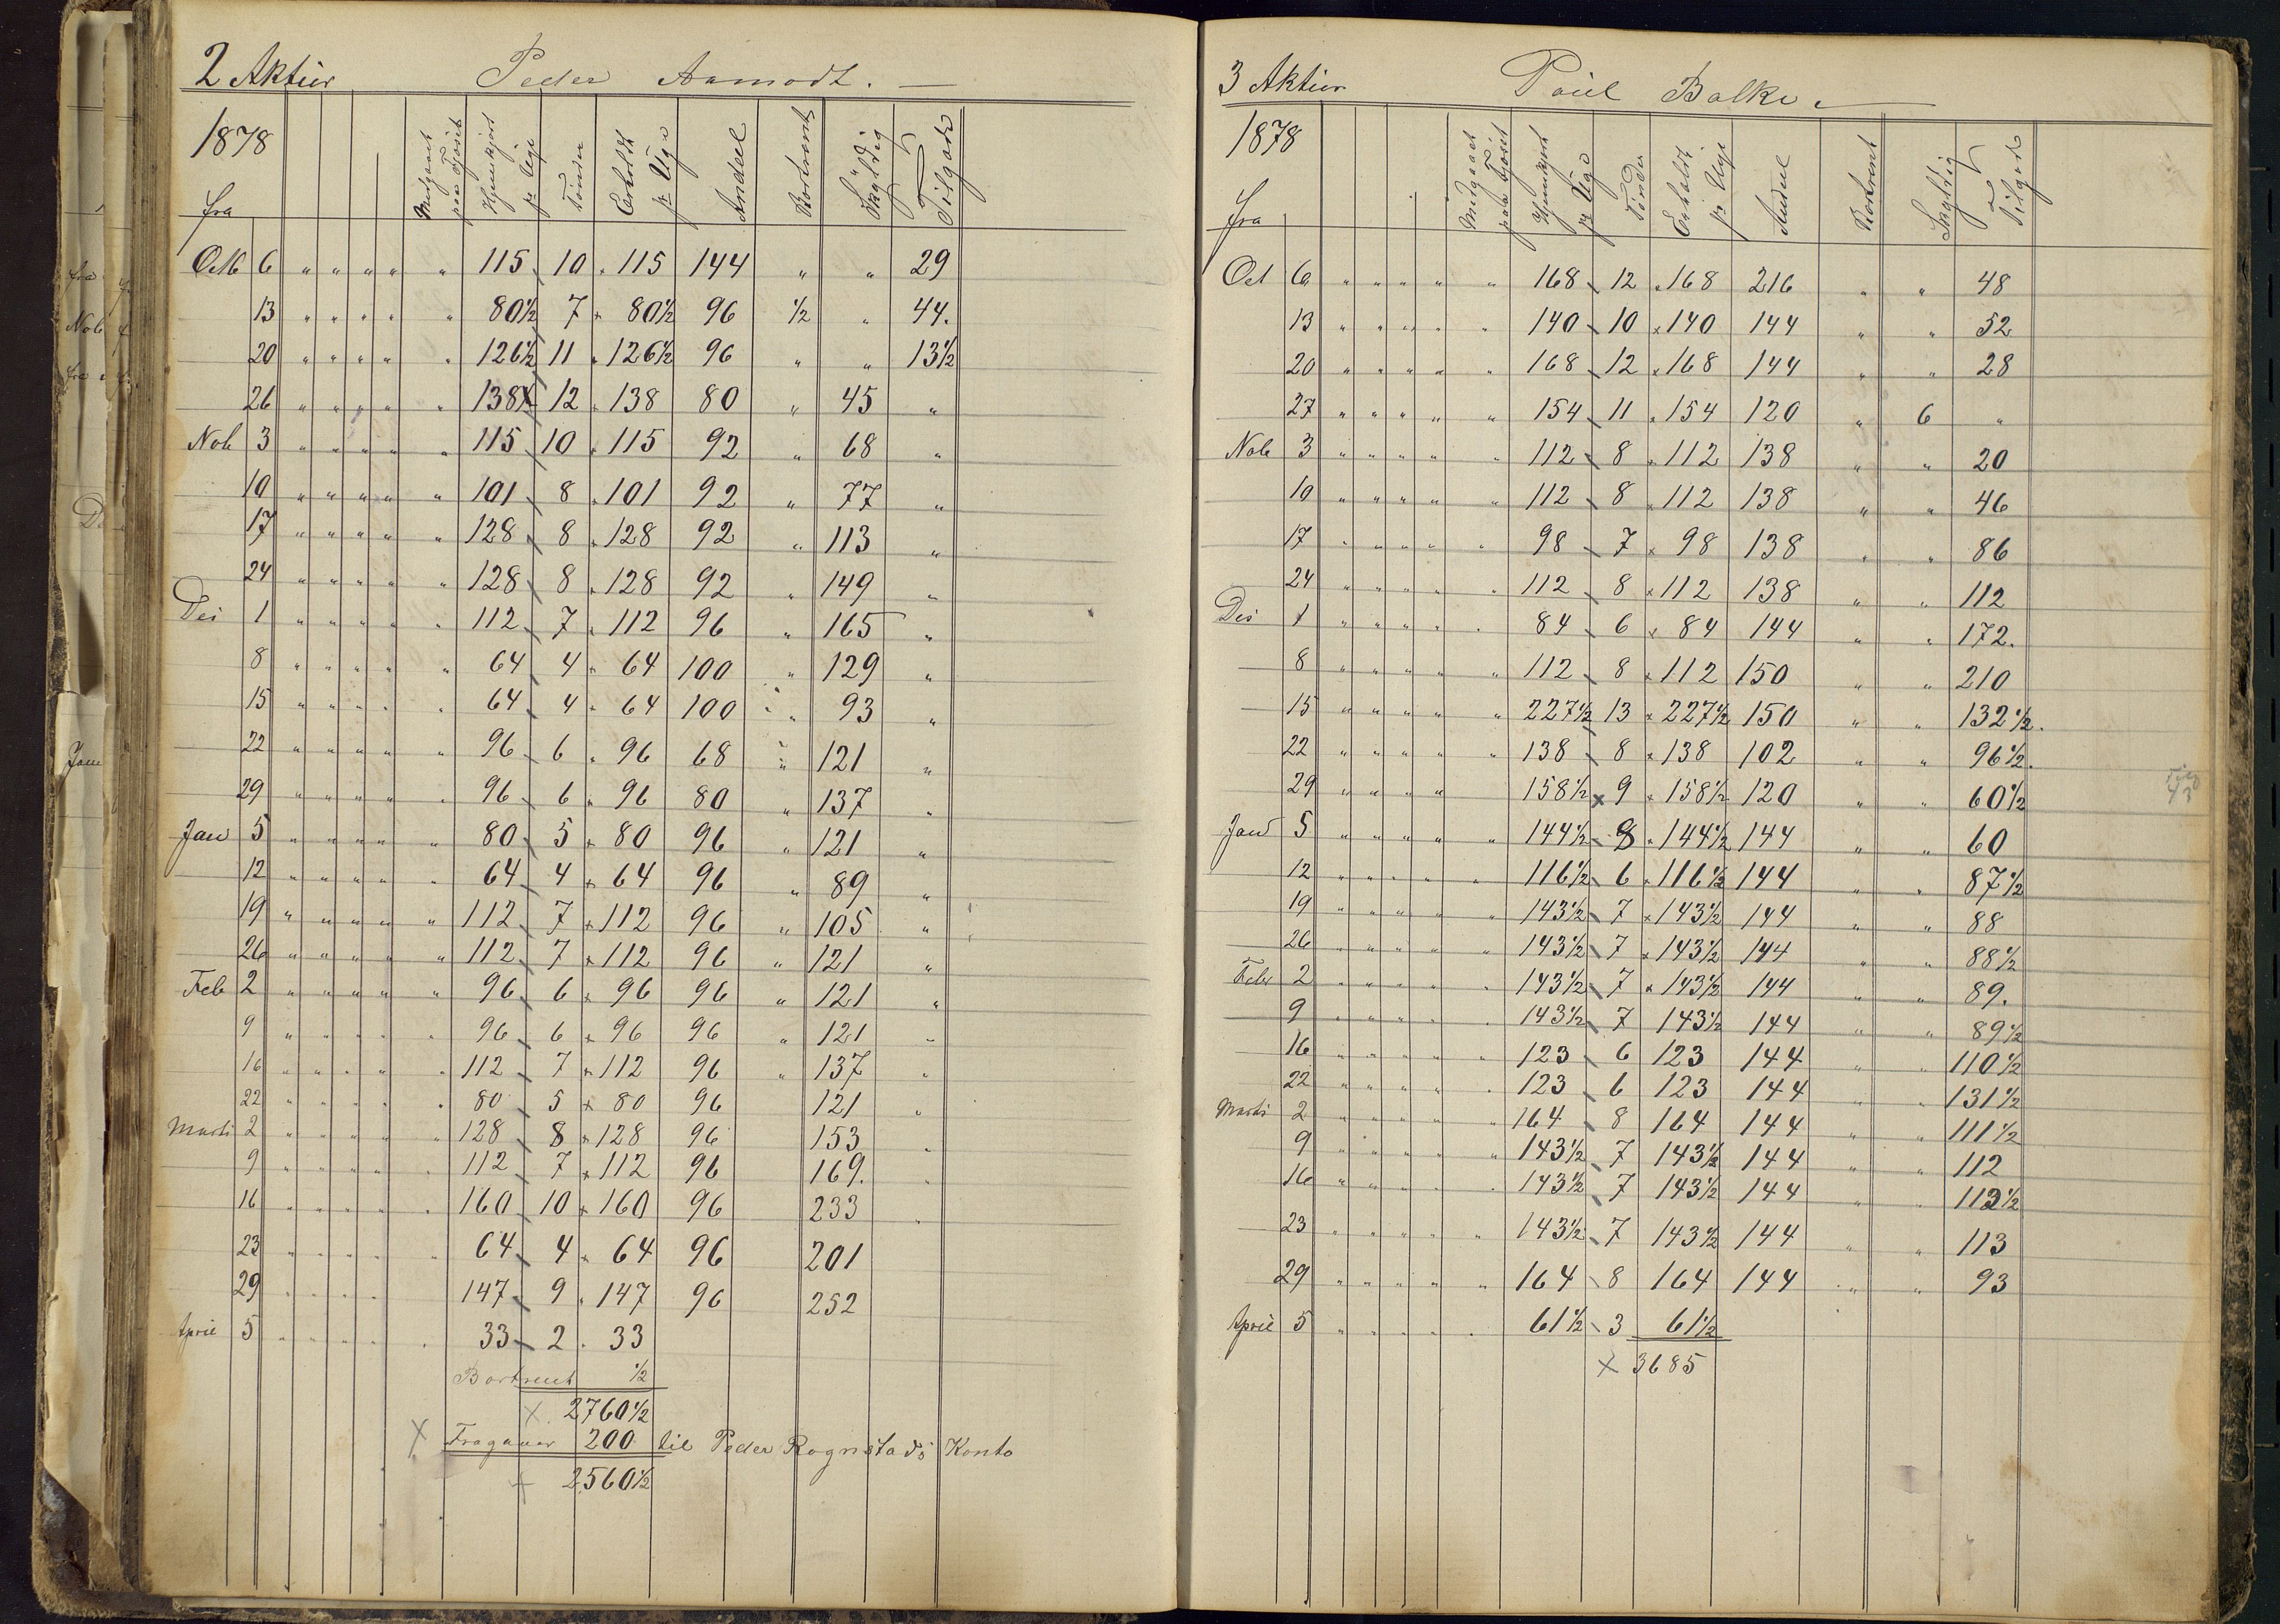 2 Aktier Peder Aamodt. —
1878
fra
Medgaaet paa Fjøset
Hjemkjørt pr Uge
Tønder
Erholdt pr Uge
Andeel
Bortrent
Skÿldig
Tilgode
Octb 6 " " " " " 115 10 " 115 144 " " 29
13 " " " " " 80½ 7 " 80½ 96 ½ " 44.
20 " " " " " 126½ 11 " 126½ 96 " " 13½
26 " " " " " 138 12 " 138 80 " 45 "
Nob 3 " " " " " 115 10 " 115 92 " 68 "
10 " " " " " 101 8 " 101 92 " 77 "
17 " " " " " 128 8 " 128 92 " 113 "
24 " " " " " 128 8 " 128 92 " 149 "
Des 1 " " " " " 112 7 " 112 96 " 165 "
8 " " " " " 64 4 " 64 100 " 129 "
15 " " " " " 64 4 " 64 100 " 93 "
22 " " " " " 96 6 " 96 68 " 121 "
29 " " " " " 96 6 " 96 80 " 137 "
Jan 5 " " " " " 80 5 " 80 96 " 121 "
12 " " " " " 64 4 " 64 96 " 89 "
19 " " " " " 112 7 " 112 96 " 105 "
26 " " " " " 112 7 " 112 96 " 121 "
Feb 2 " " " " " 96 6 " 96 96 " 121 "
9 " " " " " 96 6 " 96 96 " 121 "
16 " " " " " 112 7 " 112 96 " 137 "
22 " " " " " 80 5 " 80 96 121 "
Marts 2 " " " " " 128 8 " 128 96 153 "
9 " " " " " 112 7 " 112 96 169. "
16 " " " " " 160 10 " 160 96 233 "
23 " " " " " 64 4 " 64 96 201
29 " " " " 147 9 " 147 96 252
April 5 " " " " " 33 2 " 33
Bortrent ½
x 2760½
x Fragaaer 200 til Peder Rognstads Konto
x 2560½
3 Aktier Poul Balke. —
1878
fra
Medgaaet paa Fjøset
Hjemkjørt pr Uge
Tønder
Erholdt pr Uge
Andeel
Bortrent
Skyldig
Tilgode
Oct 6 " " " " " 168 12 " 168 216 " " 48
13 " " " " " 140 10 " 140 144 " " 52
20 " " " " " 168 12 " 168 144 " " 28
27 " " " " " 154 11 " 154 120 " 6 "
Nob 3 " " " " " 112 8 " 112 138 " " 20
10 " " " " " 112 8 " 112 138 " " 46
17 " " " " " 98 7 " 98 138 " " 86
24 " " " " " 112 8 " 112 138 " " 112
Des 1 " " " " " 84 6 " 84 144 " " 172.
8 " " " " " 112 8 " 112 150 " " 210
15 " " " " " 227½ 13 " 227½ 150 " " 132½.
22 " " " " " 138 8 " 138 102 " " 96½.
29 " " " " 158½ x 9 " 158½ 120 " " 60½
Jan 5 " " " " " 144½ 8 " 144½ 144 " " 60
12 " " " " " 116½ 6 " 116½ 144 " " 87½
19 " " " " " 143½ 7 " 143½ 144 " " 88
26 " " " " " 143½ 7 " 143½ 144 " " 88½
Febr 2 " " " " " 143½ 7 " 143½ 144 " " 89.
9 " " " " " 143½ 7 143½ 144 " " 89½
16 " " " " " 123 6 123 144 " " 110½
22 " " " " " 123 6 123 144 " " 131½
Marts 2 " " " " " 164 8 164 144 " " 111½
9 " " " " " 143½ 7 143½ 144 " " 112
16 " " " " " 143½ 7 143½ 144 " " 112½
23 " " " " " 143½ 7 143½ 144 " " 113
29 " " " " " 164 8 164 144 " " 93
April 5 " " " " " 61½ 3 61½
x 3685